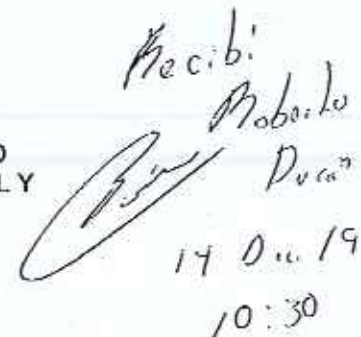 Recibí
Roberto
LY
Duran
14 Dic. 19
10:30